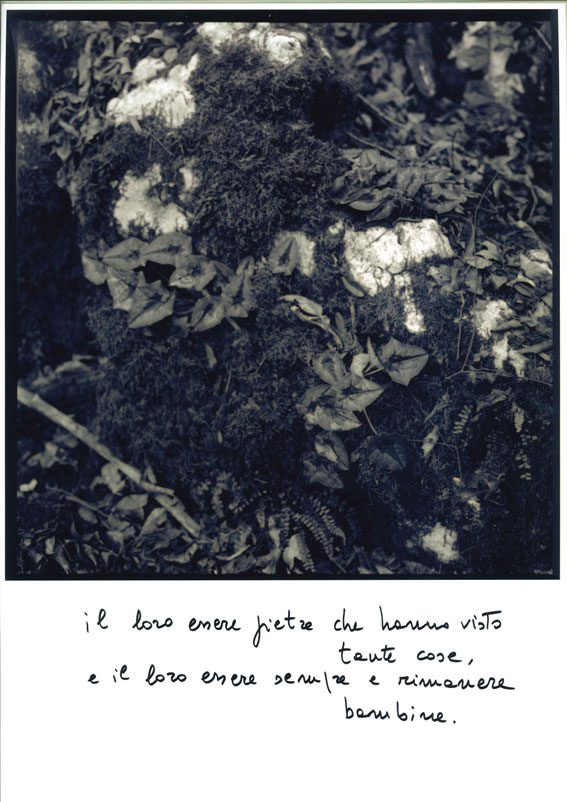 il loro essere pietre che hanno visto
tante cose,
e il loro essere sempre e rimanere
bambine.